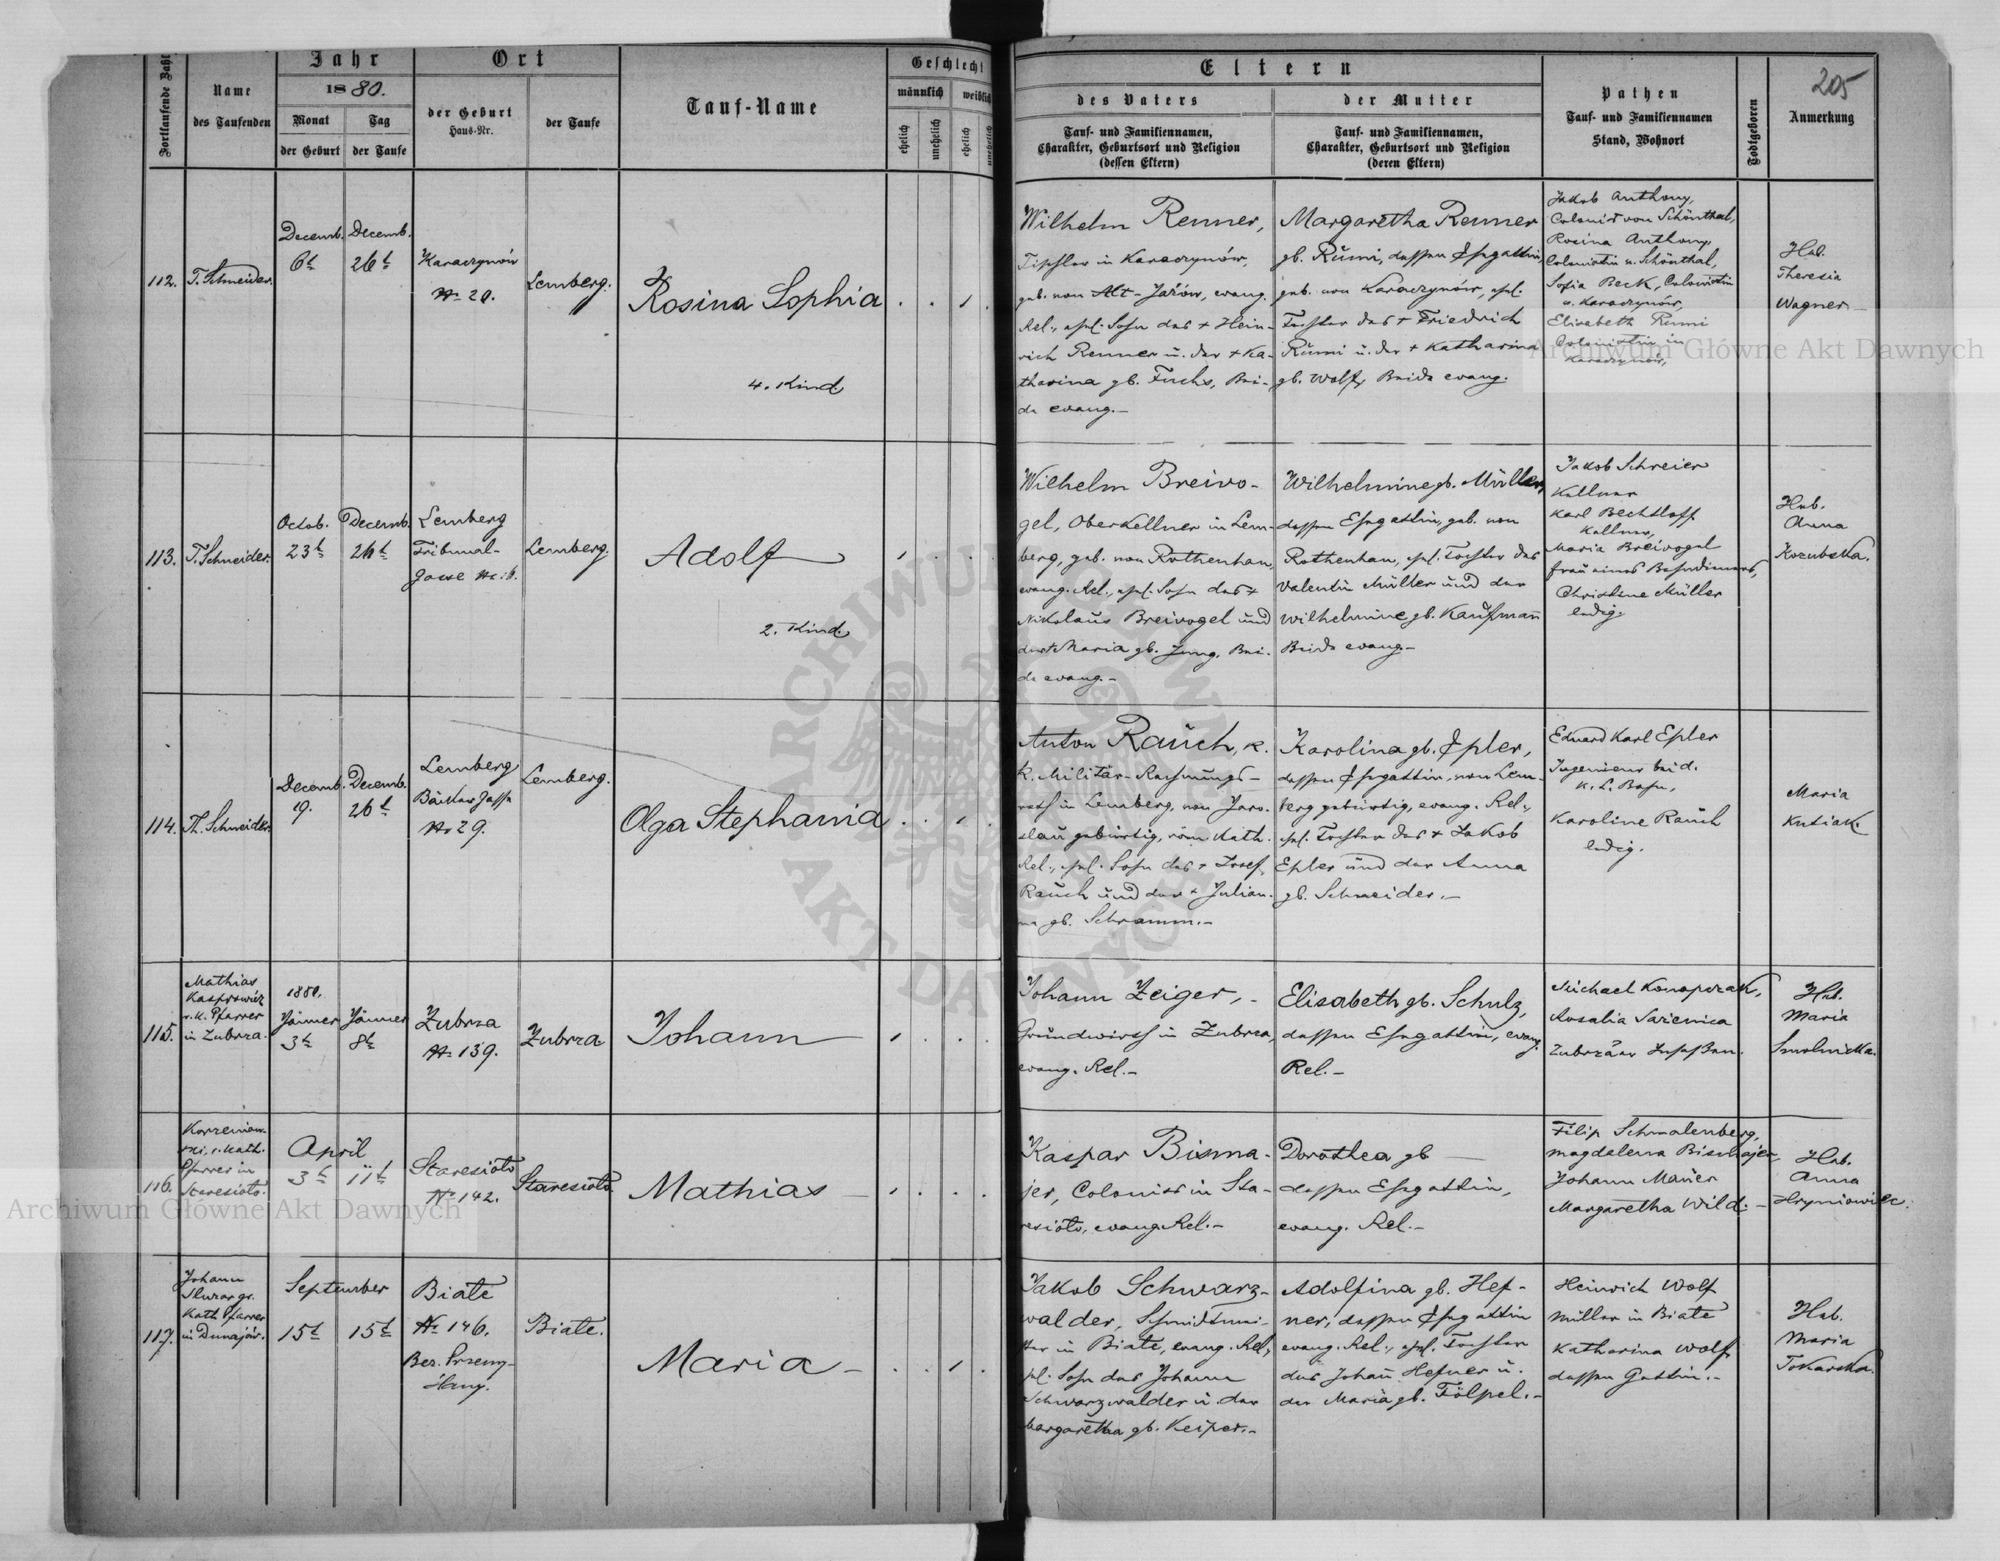 205
Fortlaufende Zahl
Name
des Taufenden
Jahr
1880.
Monat
der Geburt
Tag
der Taufe
Ort
der Geburt
Haus-Nr.
der Taufe
Tauf-Name
Geschlecht
männlich
weiblich
ehelich
unehelich
ehelich
unehelich
Eltern
des Vaters
Tauf- und Familiennamen,
Charakter, Geburtsort und Religion
(dessen Eltern)
der Mutter
Tauf- und Familiennamen,
Charakter, Geburtsort und Religion
(deren Eltern)
Pathen
Tauf- und Familiennamen
Stand, Wohnort
Todtgeboren
Anmerkung
112.
T. Schneider.
Decemb.
6t
Decemb.
26t
Karaczynów
No 20.
Lemberg.
Rosina Sophia
4. Kind
Wilhelm Renner,
Tischler in Karaczynów,
geb. von Alt-Jażów, evang.
Rel., ehel. Sohn des + Hein-
rich Renner u. der + Ka-
tharina gb. Fuchs, Bei-
de evang.-
Margaretha Renner
gb. Rümi, dessen Ehegattin,
geb. von Karaczynów, ehel.
Tochter des + Friedrich
Rümi u. der + Katharina
gb. Wolf, Beide evang.
Jakob Anthony,
Colonist von Schönthal,
Rosina Anthony
Colonistin v. Schönthal,
Sofia Beck, Colonistin
v. Karaczynów,
Elisabeth Rümi
Colonistin in
Karaczynów,
Heb.
Theresia
Wagner-
113.
T. Schneider.
Octob.
23t
Decemb.
26t
Lemberg
Tribunal-
gasse No: 6.
Lemberg.
Adolf
2. Kind.
Wilhelm Breivo-
gel, Oberkellner in Lem-
berg, geb. von Rothenhan,
evang. Rel., ehel. Sohn des +
Nikolaus Breivogel und
der + Maria gb. Jung, Bei-
de evang.-
Wilhelmine gb. Müller,
dessen Ehegattin, geb. von
Rothenhan, ehel. Tochter des
Valentin Müller und der
Wilhelmine gb. Kaufmann
Beide evang.-
Jakob Schreier
Kellner
Karl Bechtloff
Kellner,
Maria Breivogel
Frau eines Bahndieners,
Christine Müller
ledig.
Heb.
Anna
Kozubska.
114.
Th. Schneider.
Decemb.
19.
Decemb.
26t
Lemberg
Bäcker Gasse
No 29.
Lemberg.
Olga Stephania
Anton Rauch, k.
k. Militär-Rechnungs-
rath in Lemberg, von Jaro-
slau gebürtig, röm. Kath.
Rel., ehel. Sohn des + Josef
Rauch und der + Julian-
na gb. Schramm.-
Karolina gb. Epler,
dessen Ehegattin, von Lem-
berg gebürtig, evang. Rel.,
ehel. Tochter des + Jakob
Epler und der Anna
gb. Schneider.-
Eduard Karl Epler
Ingenieur bei d.
K. L. Bahn,
Karoline Rauch
ledig.
Maria
Kusiak.
115.
Mathias
Kasprowicz
r. k. Pfarrer
in Zubrza.
1880.
Jänner
3t
Jänner
8t
Zubrza
No 139.
Zubrza
Johann
Johann Zeiger,-
Grundwirth in Zubrza,
evang. Rel.-
Elisabeth gb. Schulz,
dessen Ehegattin, evang.
Rel.-
Michael Konopczak,
Rosalia
Zubrzaer Insaßen.
Heb.
Maria
Smolnicka.
116.
Pfarrer in
Staresioło.
April
3t
11t
Staresioło
No 142.
Staresioło.
Mathias
Kaspar Bisma-
jer, Colonist in Sta-
resioło, evang. Rel.-
Dorothea gb —
dessen Ehegattin,
evang. Rel.-
Filip Schmalenberg,
Magdalena Bismajer
Johann Mauer
Margaretha Wild.-
Heb.
Anna
Hryniowiec.
117.
Johann
gr.
Kath. Pfarrer
in Dunajów.
September
15t
15t
Białe
No 146.
Bez. Przemy-
ślany.
Białe.
Maria-
Jakob Schwarz-
walder, Schmidtmei-
ster in Białe, evang. Rel.,
ehel. Sohn des Johann
Schwarzwalder u. der
Margaretha gb. Keiper.-
Adolfina gb. Hef-
ner, dessen Ehegattin
evang. Rel., ehel. Tochter
des Johann Hefner u.
der Maria gb. Fölpel.-
Heinrich Wolf
Müller in Białe
Katharina Wolf
dessen Gattin.-
Heb.
Maria
Tokarska.
Archiwum Główne Akt Dawnych
Archiwum Główne Akt Dawnych
ARCHIWUM GŁÓWNE AKT DAWNYCH